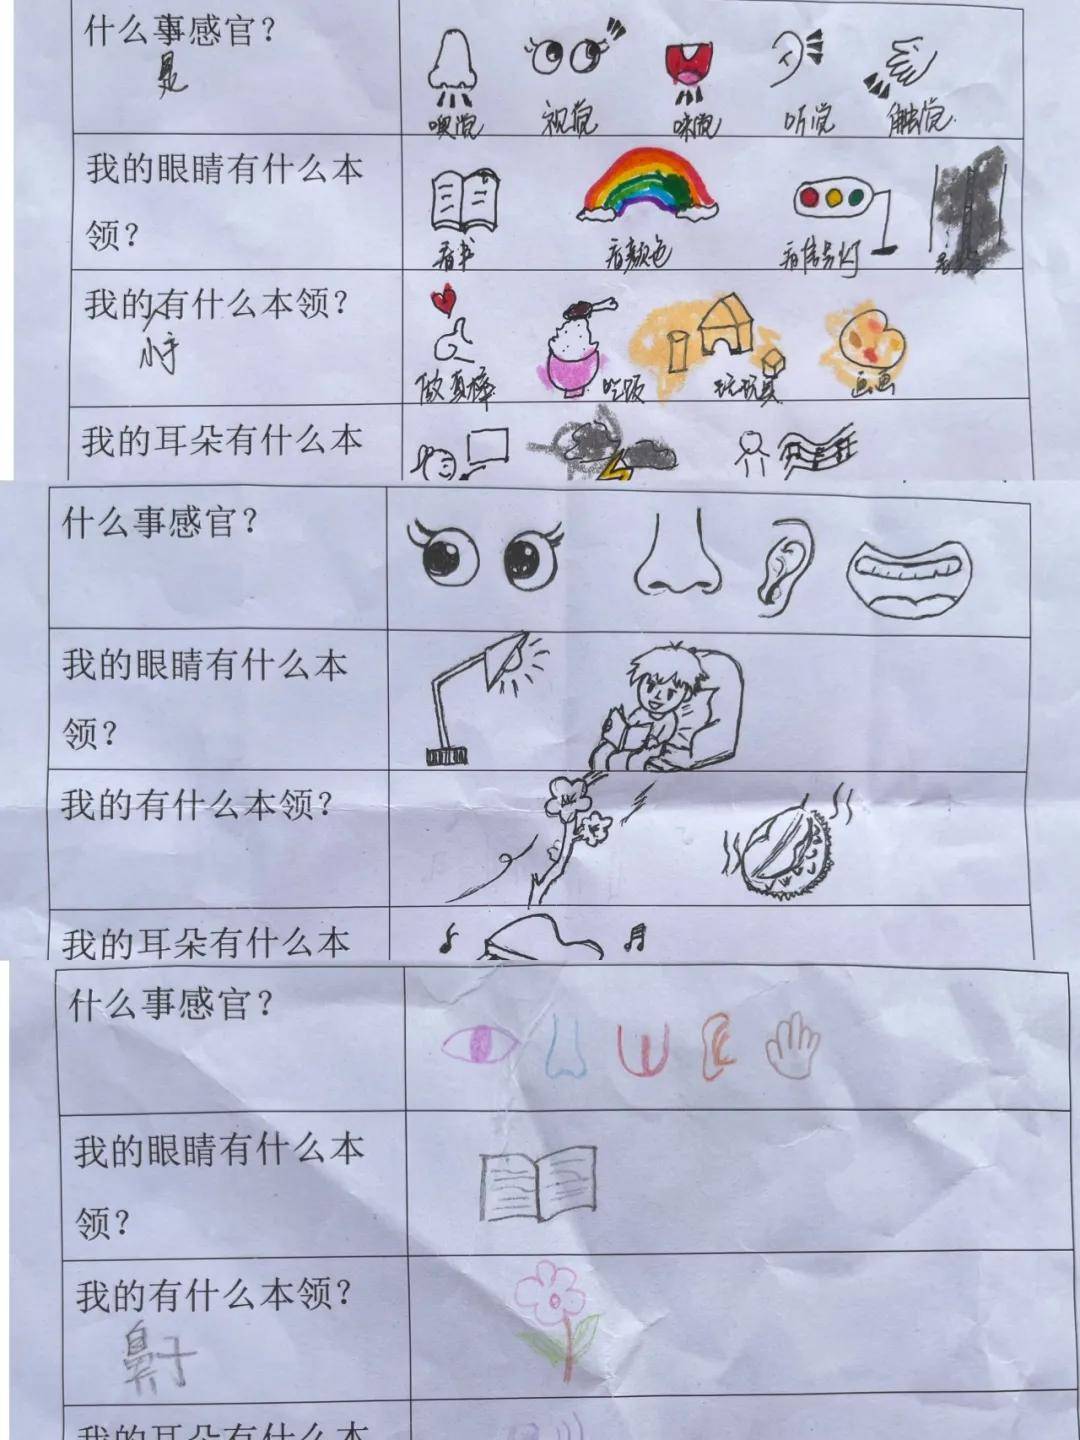 什么事感官？
是
嗅觉 视觉 味觉 听觉 触觉
我的眼睛有什么本
领？
看书 看颜色 看信号灯
我的有什么本领？
小手
做真棒 吃饭 玩玩具 画画
我的耳朵有什么本
什么事感官？
我的眼睛有什么本
领？
我的有什么本领？
我的耳朵有什么本
什么事感官？
我的眼睛有什么本
领？
我的有什么本领？
鼻子
我的耳朵有什么本